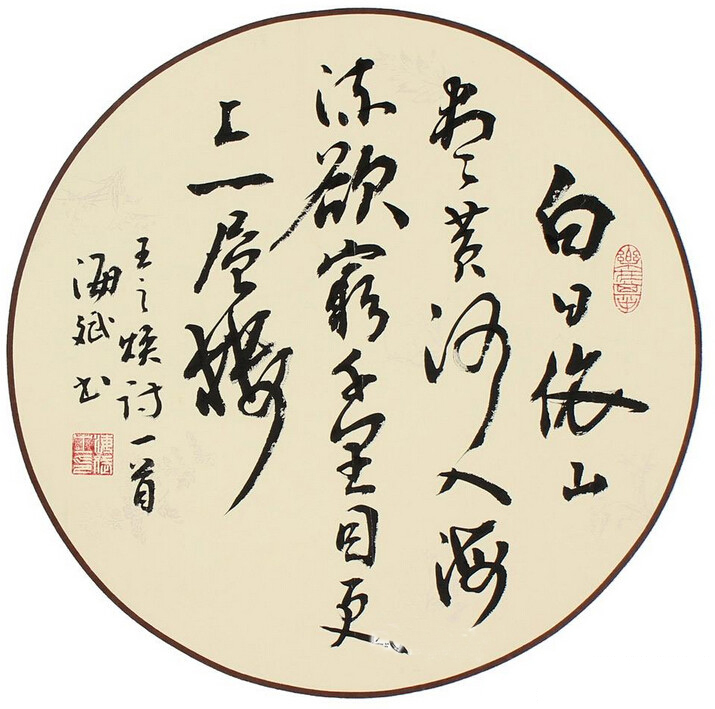 白日依山
尽黄河入海
流欲穷千里目更
上一层楼
王之焕诗一首
海斌书